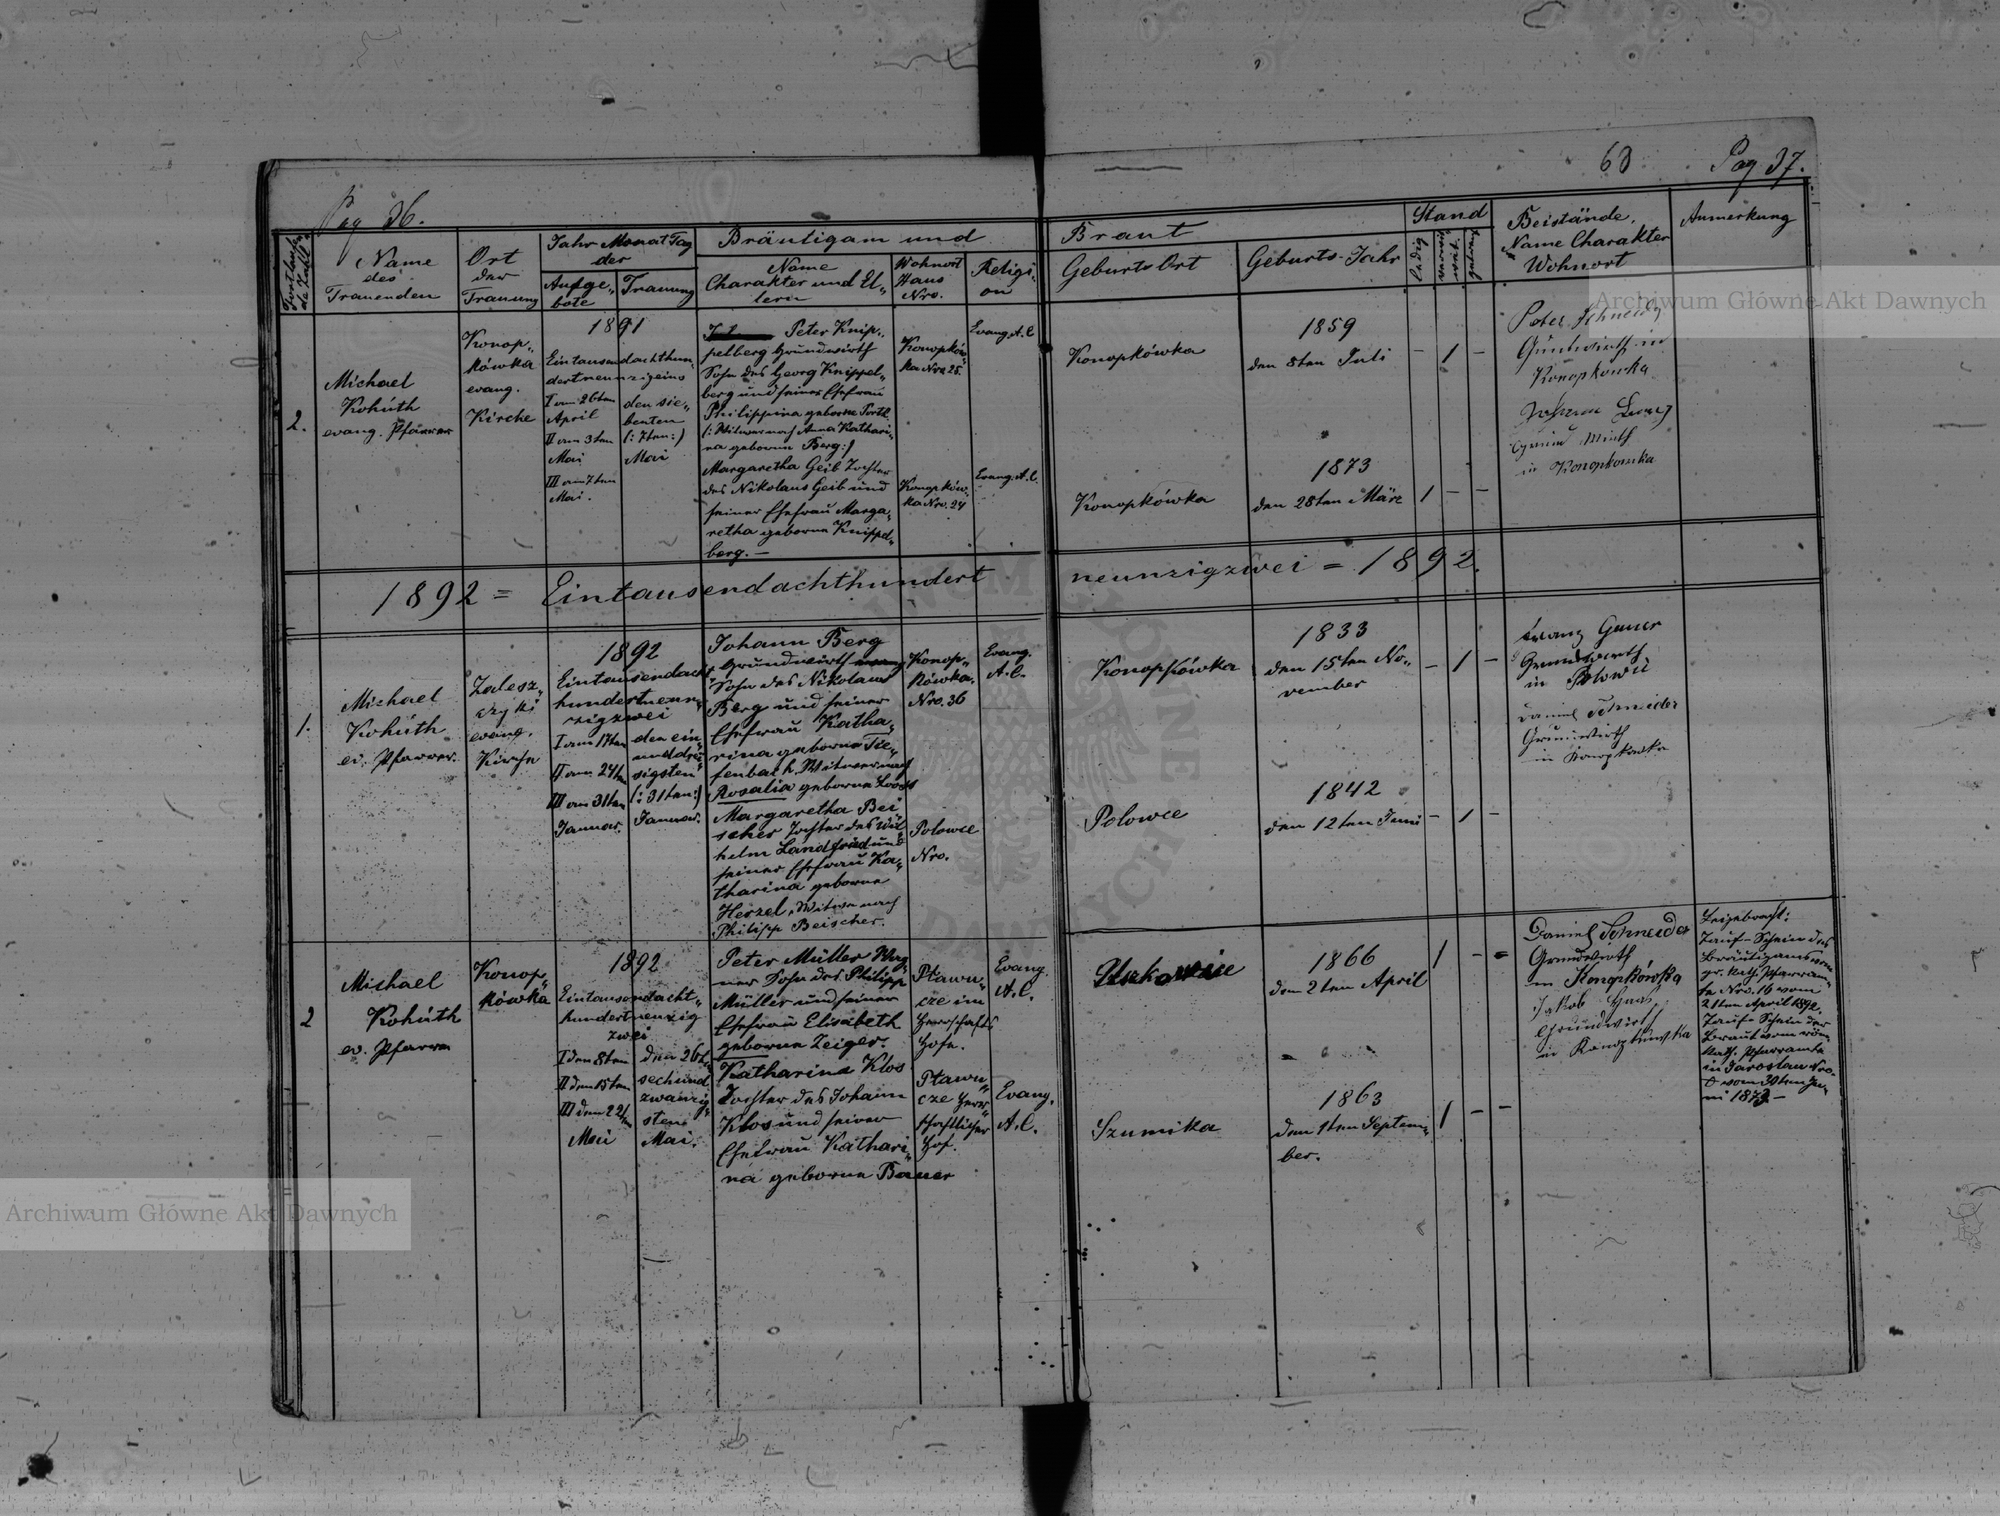 Pag 36.
63 Pag 37.
Name des Trauenden
Ort der Trauung
Jahr Monat Tag der
Aufge- bote
Trauung
Bräutigam und
Name
Charakter und El-
tern
Wohnort
Haus
Nro.
Religi-
on
Braut
Geburts Ort
Geburts-Jahr
Stand
ledig
Beistände,
Name Charakter
Wohnort
Anmerkung
2.
Michael
Kohúth
evang. Pfarrer
Konop-
kówka
evang.
Kirche
1891
Eintausendachthun-
dertneunzigeins
I am 26ten
April
II am 3ten
Mai
III am 7ten
Mai.
den sie-
benten
(: 7ten :)
Mai
Peter Knip-
pelberg Grundwirth
Sohn des Georg Knippel-
berg und seiner Ehefrau
Philippina geborne
(: Witwer nach Anna Kathari-
na geborne Berg :)
Margaretha Geib Tochter
des Nikolaus Geib und
seiner Ehefrau Marga-
retha geborne Knippel-
berg. —
Konopków-
ka Nro 25.
Konopków-
ka Nro. 24
Evang. A. C.
Evang. A. C.
Konopkówka
1859
den 8ten Juli
- 1 -
Konopkówka
1873
den 28ten März
1 - -
Peter Schneider
in
Konopkowka
in Konopkowka
1892 = Eintausendachthundert neunzigzwei = 1892.
1.
Michael
Kohúth
ev. Pfarrer.
Zalesz-
czyki
evang.
Kirche
1892
Eintausendacht
hundertneun-
zigzwei
I am 17ten
II am 24ten
III am 31ten
Januar.
den ein-
unddrei-
sigsten
(: 31ten :)
Januar.
Johann Berg
Grundwirth
Sohn des Nikolaus
Berg und seiner
Ehefrau Katha-
rina geborne Tie-
fenbach. Witwer nach
Rosalia geborne Looss
Margaretha Bei
scher Tochter des Wil-
helm Landfried und
seiner Ehefrau Ka-
tharina geborne
Herzel, Witwe nach
Philipp Beischer.
Konop-
kówka.
Nro. 36
Polowce
Nro.
Evang.
A. C.
Konopkówka
1833
den 15ten No-
vember
- 1 -
Polowce
1842
den 12ten Juni
- 1 -
Franz
Grundwirth
in
Daniel Schneider
Grundwirth
in
2
Michael
Kohúth
ev. Pfarrer
Konop-
kówka
1892
Eintausendacht-
hundertneunzig
zwei
I den 8ten
II den 15ten
III den 22ten
Mai
den 26t.
sechund
zwanzig-
sten
Mai.
Peter Müller Wag-
ner Sohn des Philipp
Müller und seiner
Ehefrau Elisabeth
geborne Zeiger.
Katharina Klos
Tochter des Johann
Klos und seiner
Ehefrau Kathari-
na geborne Bauer
Ptawu-
cze im
Herrschafts
Hofe.
Ptawu-
cze Herr-
schaftlicher
Hof.
Evang.
A. C.
Evang.
A. C.
1866
den 2ten April
1 - -
Szumika
1863
den 1ten Septem-
ber.
1 - -
Daniel Schneider
Grundwirth
in Konopkówka
Jakob
Grundwirth
in Konopkówka
Beigebracht:
Tauf-Schein des
Bräutigams vom
gr. kath. Pfarram-
te Nro. 16 vom
21ten April 1892.
Tauf-Schein der
Braut vom röm.
kath. Pfarramte
in Jaroslau Nro.
vom 30ten Ju-
ni 1873 —
Archiwum Główne Akt Dawnych
Archiwum Główne Akt Dawnych